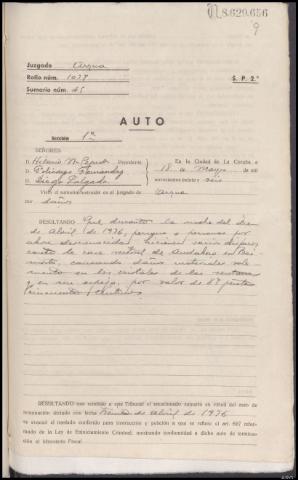 N 8.629.656
9
Juzgado Arzua
Rollo núm. 1039
Sumario núm. 45
S. P. 2.ª
AUTO
Sección 1ª
SEÑORES:
D. Presidente
D. Fernández
D. Diego Salgado
En la Ciudad de La Coruña a
18 de Mayo de mil
novecientos treinta y seis
Visto el sumario instruído en el Juzgado de Arzua
por daños
RESULTANDO Que durante la noche del dia
de Abril de 1936, persona o personas por
ahora desconocidas hicieron varios disparos
contra la casa rectoral de en
causando daños materiales
en los cristales de las ventanas
y en un espejo, por valor de pesetas
cincuenta centimos
RESULTANDO que remitido a este Tribunal el mencionado sumario en virtud del auto de
terminación dictado con fecha de Abril de 1936
se evacuó el traslado conferido para instrucción y petición a que se refiere el art. 627 refor-
mado de la Ley de Enjuiciamiento Criminal, mostrando conformidad a dicho auto de termina-
ción el Ministerio Fiscal.